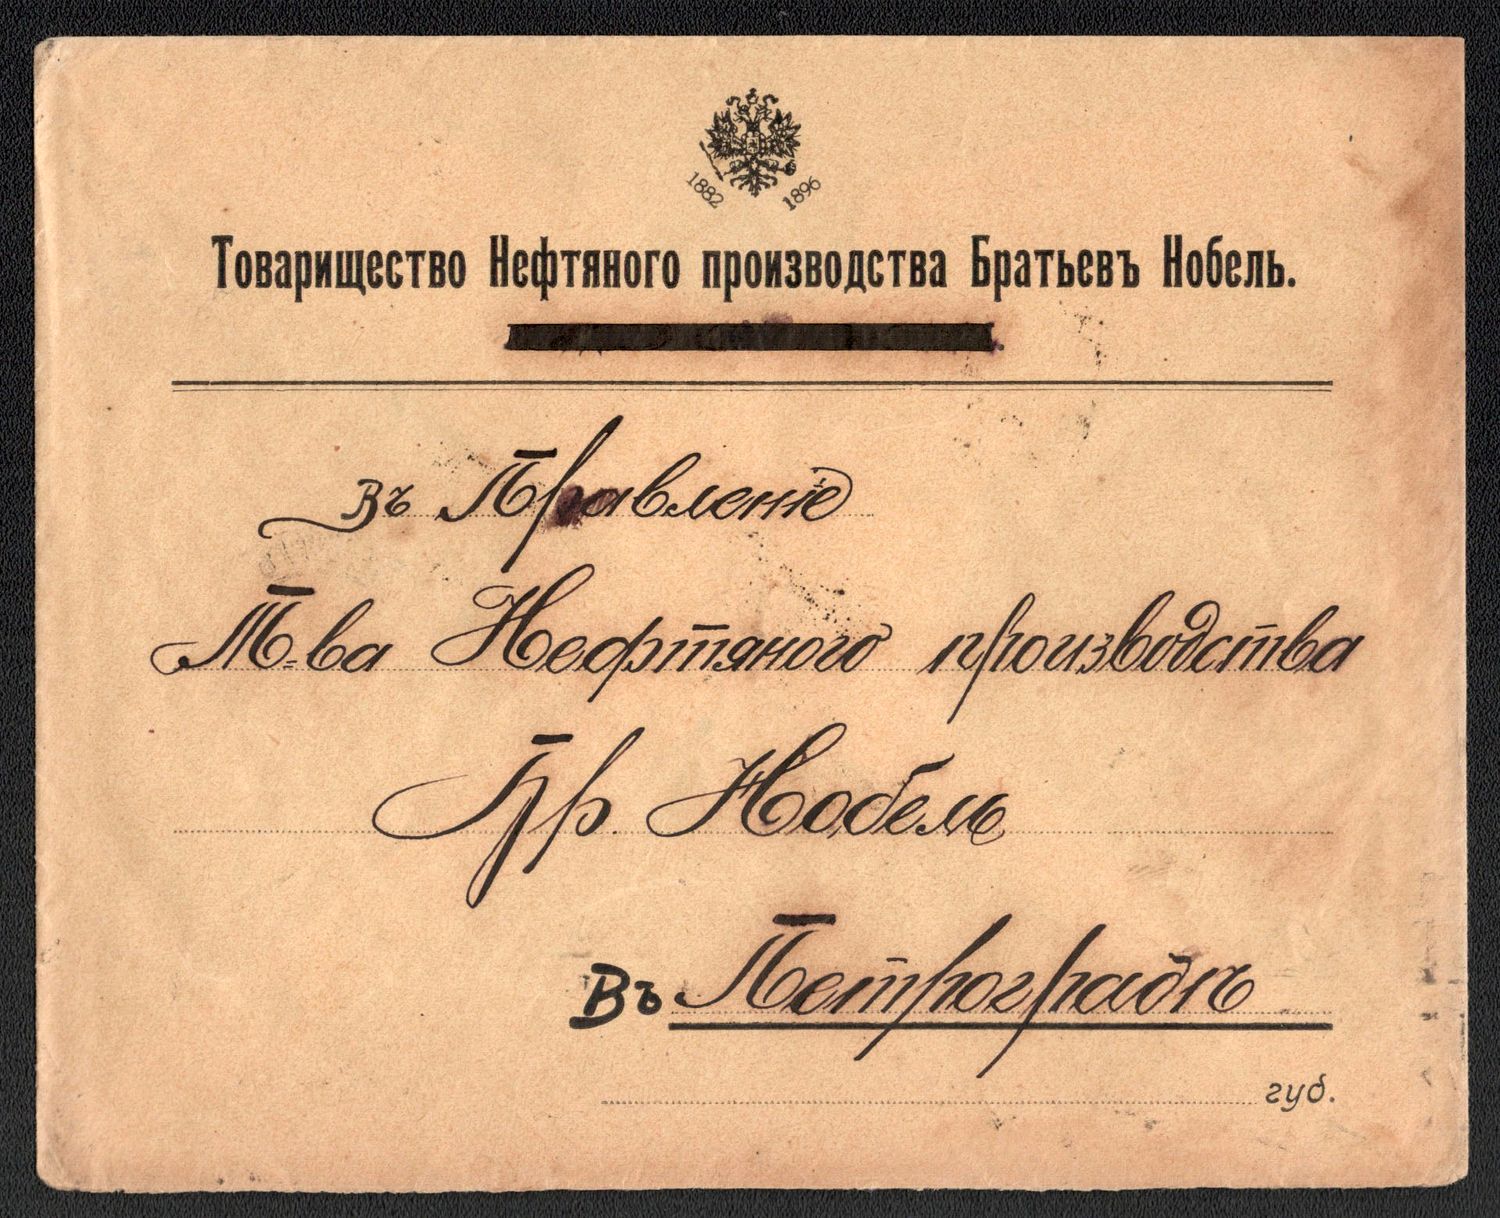 1882 1896
Товарищество Нефтяного производства Братьевъ Нобель.
Въ Правленіе
Т=ва Нефтяного производства
Бр. Нобель
Въ Петроградъ
губ.